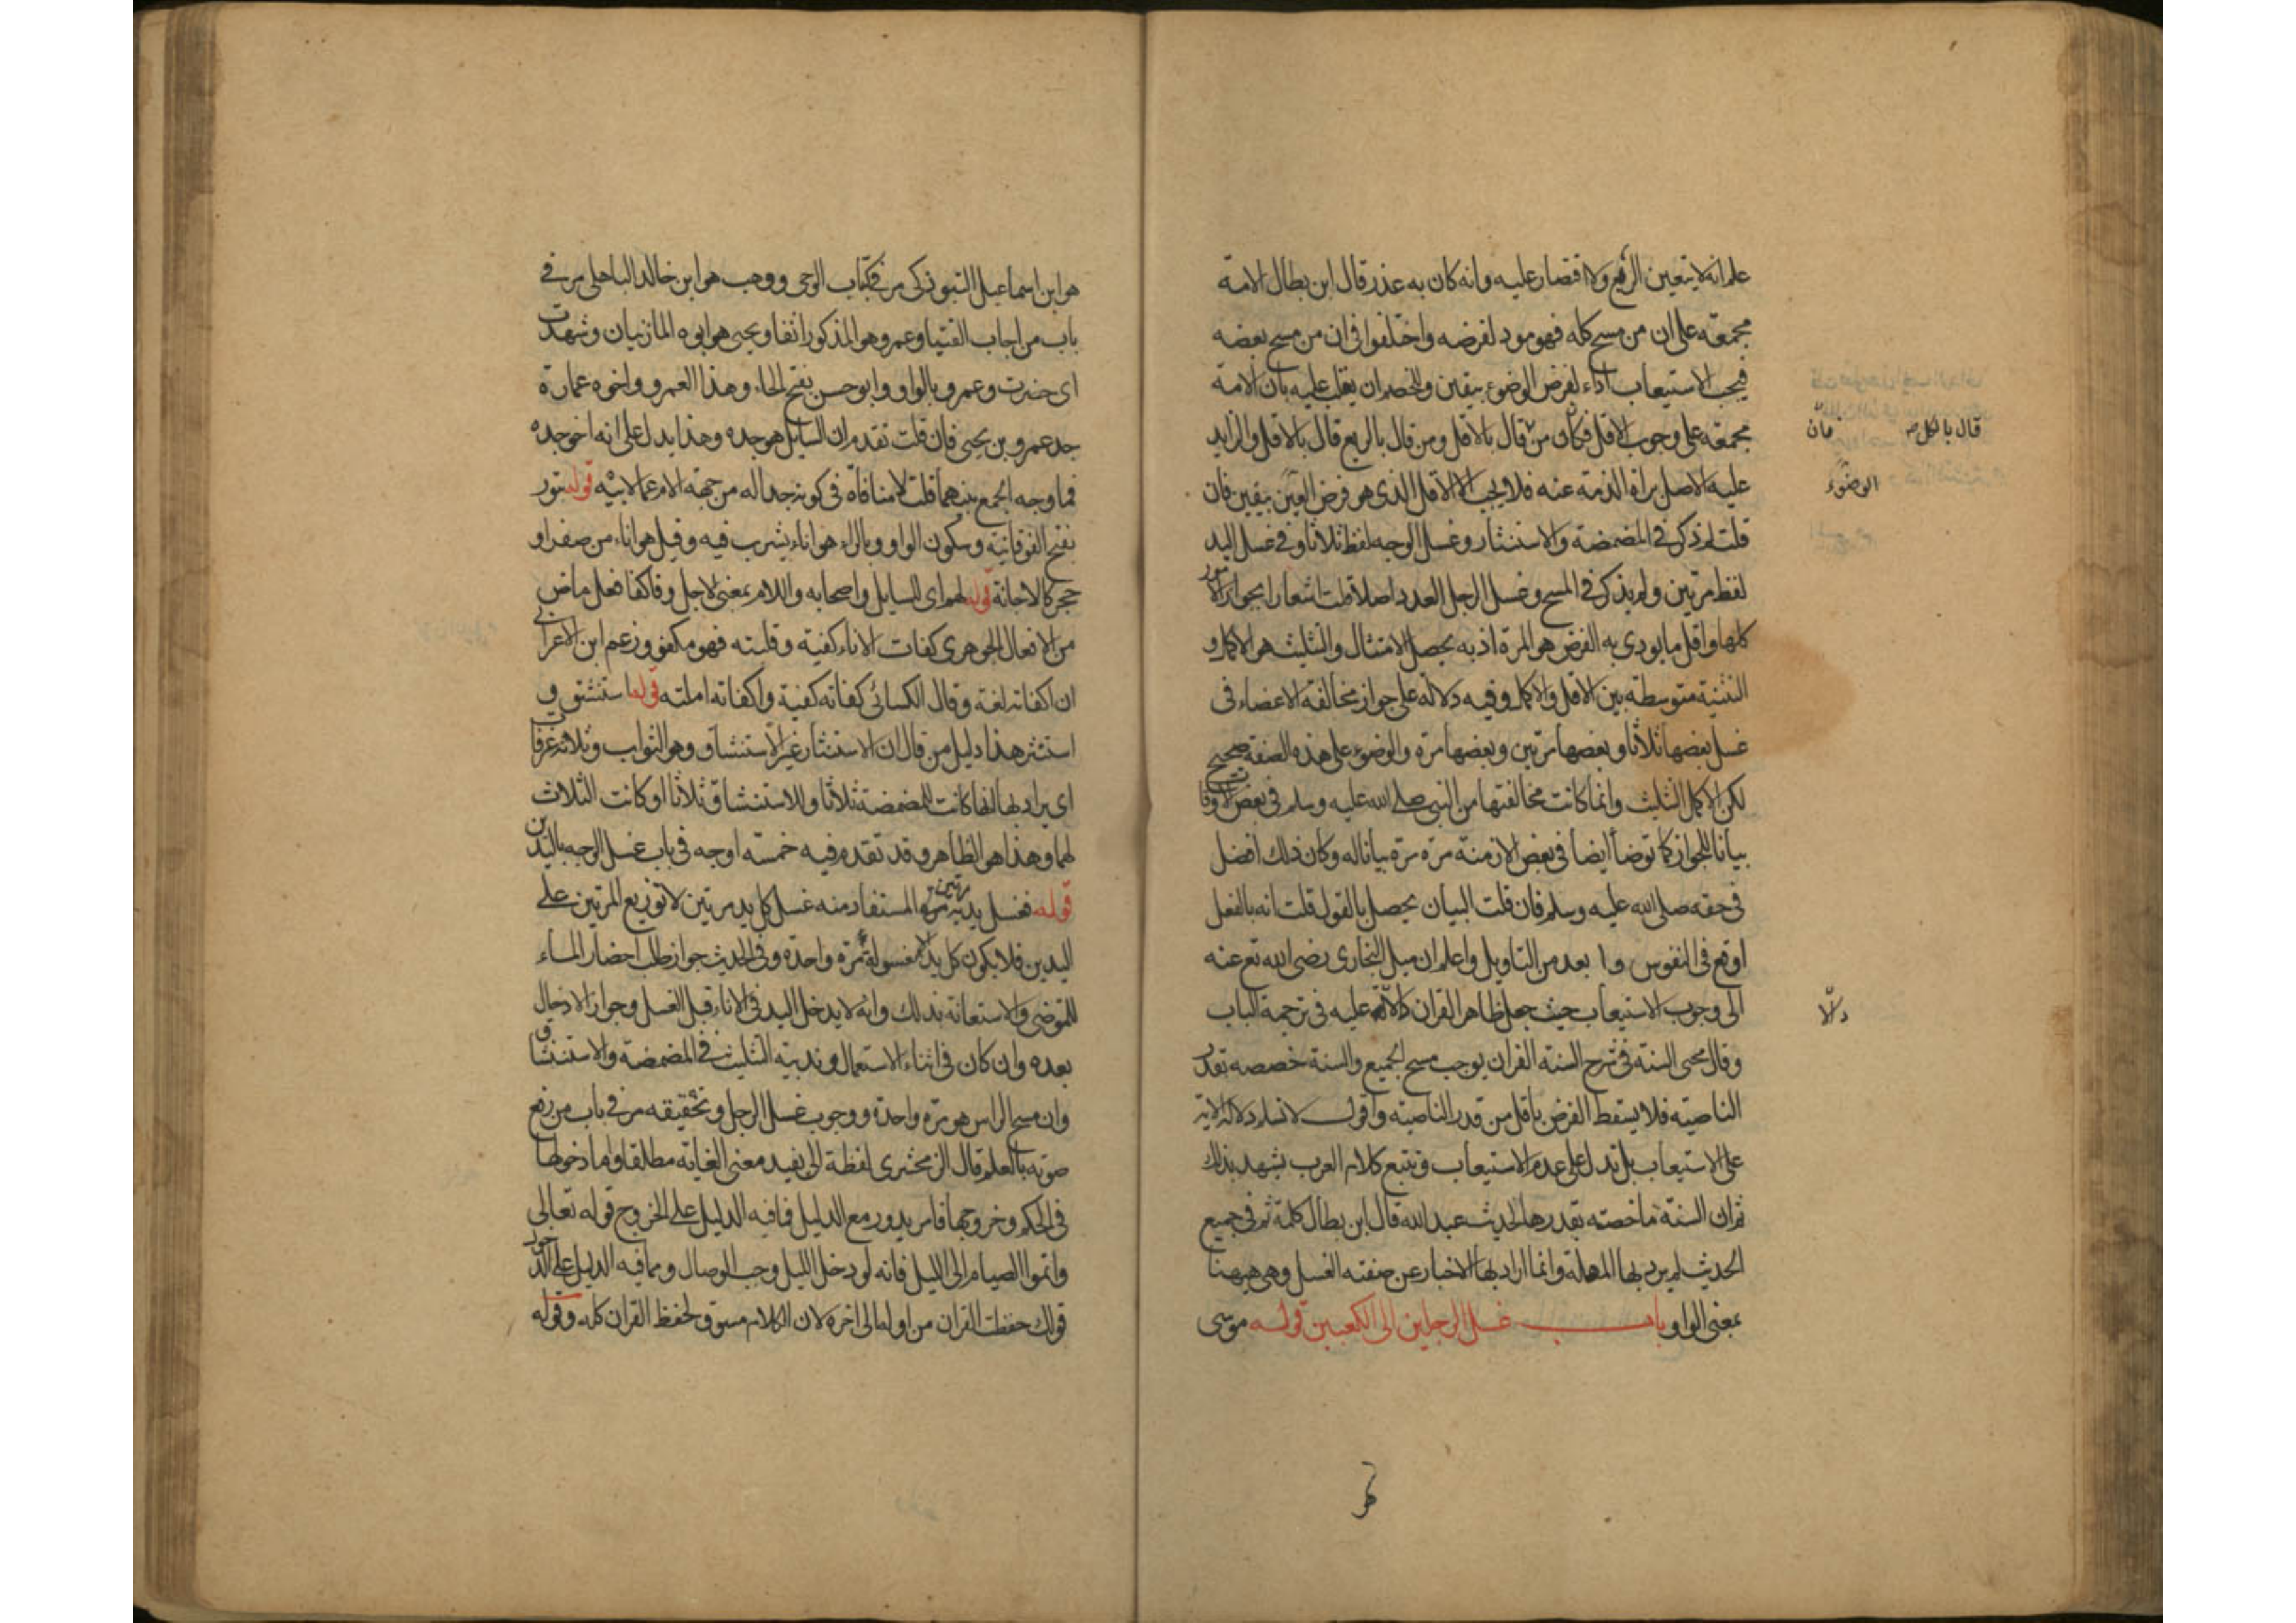 علم انه لا يتعين الربع ولا اقتصار عليه وانه كان به عذر قال ابن بطال الامة
مجمعة على ان من مسح كله فهو مود لفرضه واختلفوا في ان من مسح بعضه
فيجب الاستيعاب اداء لفرض الوضوء بيقين وللخصم ان يقلب عليه بان الامة
مجمعة على وجوب الاقل فكان من قال بالاقل ومن قال بالربع قال بالاقل والزايد
عليه الاصل براة الذمة عنه فلا يجب الا الاقل الذي هو فرض بيقين فان
قلت لم ذكر في المضمضة والاستنثار وغسل الوجه لفظ ثلاثا وفي غسل اليد
لفظ مرتين ولم يذكر في المسح وغسل الرجل العدد اصلا قلت اشعارا بجواز الامور
كلها واقل ما يودي به الفرض هو المرة اذ به يحصل الامتثال والتثليث هو الاكمل و
التثنية متوسطة بين الاقل والاكمل وفيه دلالة على جواز مخالفة الاعضاء في
غسل بعضها ثلاثا وبعضها مرتين وبعضها مرة والوضوء على هذه الصفة صحيح
لكن الاكمل التثليث وانما كانت مخالفتها من النبي صلى الله عليه وسلم في بعض الاوقات
بيانا للجواز كما توضأ ايضا في بعض الازمنة مرة مرة بيانا له وكان ذلك افضل
في حقه صلى الله عليه وسلم فان قلت البيان يحصل بالقول قلت انه بالفعل
اوقع في النفوس وا بعد من التاويل واعلم ان ميل البخاري رضي الله تع عنه
الى وجوب الاستيعاب حيث جعل ظاهر القران دلالة عليه في ترجمة الباب
وقال محيي السنة في شرح السنة القران يوجب مسح الجميع والسنة خصصه بقدر
الناصية فلا يسقط الفرض باقل من قدر الناصية واقول لا نسلم دلالة الاية
على الاستيعاب بل تدل على عدم الاستيعاب وتتبع كلام العرب يشهد بذلك
ثم ان السنة ما خصته بقدرها لحديث عبد الله قال ابن بطال كلمة ثم في جميع
الحديث لم يرد بها المهلة وانما اراد بها الاخبار عن صفة الغسل وهي ههنا
بمعنى الواو باب غسل الرجلين الى الكعبين قوله موسى
قال بالكل فان
الوضوء
هو ابن اسماعيل التبوذكي مر في كتاب الوحي ووهيب هو ابن خالد الباهلي مر في
باب من اجاب الفتيا وعمرو هو المذكور انفا ويحيى هو ابوه المازنيان وشهدت
اى حضرت وعمرو بالواو وابو حسن بفتح الحاء وهذا العمرو واخوه عمارة
جد عمرو بن يحيى فان قلت تقدم ان السايل هو جده وهذا يدل على انه اخو جده
فما وجه الجمع بينهما قلت لا منافاة في كونه جدا له من جهة الام عما لابيه قوله بتور
بفتح الفوقانية وسكون الواو وبالراء هو اناء يشرب فيه وقيل هو اناء من صفر او
حجر كالاجانة قوله لهم اى السايل واصحابه واللام بمعنى لاجل وفاكفا فعل ماض
من الافعال الجوهري كفات الاناء كفية وقلبته فهو مكفو وزعم ابن الاعرابي
ان اكفاته لغة وقال الكسائي كفاته كفية واكفاته املته قوله استنشق و
استنثر هذا دليل من قال ان الاستنثار غير الاستنشاق وهو الثواب وثلاث غرفات
اى يراد بها انها كانت للمضمضة ثلاثا وللاستنشاق ثلاثا او كانت الثلاث
لهما وهذا هو الظاهر وقد تقدم فيه خمسة اوجه في باب غسل الوجه باليدين
قوله فغسل يديه مرتين المستفاد منه غسل كل يد مرتين لا توزيع المرتين على
اليدين فلا يكون كل يد الا مغسولة مرة واحدة وفي الحديث جواز طلب احضار الماء
للتوضى والاستعانة بذلك وانه لا يدخل اليد في الاناء قبل الغسل وجواز الادخال
بعده وان كان في اثناء الاستعمال وندبية التثليث في المضمضة والاستنشاق
وان مسح الراس هو مرة واحدة ووجوب غسل الرجل وتحقيقه مر في باب من رفع
صوته بالعلم قال الزمخشري لفظة الى يفيد معنى الغاية مطلقا واما دخولها
في الحكم وخروجها فامر يدور مع الدليل فما فيه الدليل على الخروج قوله تعالى
واتموا الصيام الى الليل فانه لو دخل الليل وجب الوصال ومما فيه الدليل على الدخول
قولك حفظت القران من اوله الى اخره لان الكلام مسوق لحفظ القران كله وقوله